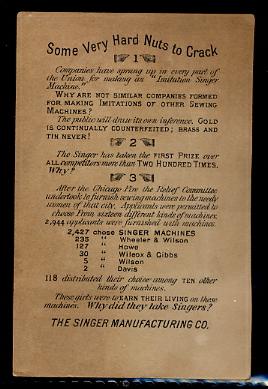 Some Very Hard Nuts to Crack
1
Companies have sprung up in every part of
the Union for making an "Imitation Singer
Machine."
WHY ARE NOT SIMILAR COMPANIES FORMED
FOR MAKING IMITATIONS OF OTHER SEWING
MACHINES?
The public will draw its own inference. GOLD
IS CONTINUALLY COUNTERFEITED; BRASS AND
TIN NEVER!
2
The Singer has taken the FIRST PRIZE over
ALL competitors more than TWO HUNDRED TIMES.
Why?
3
After the Chicago Fire the Relief Committee
undertook to furnish sewing machines to the needy
women of that city. Applicants were permitted to
choose from sixteen different kinds of machines.
2,944 applicants were furnished with machines.
2,427 chose SINGER MACHINES
235 " Wheeler & Wilson
127 " Howe
30 " Wilcox & Gibbs
5 " Wilson
2 " Davis
118 distributed their choice among TEN other
kinds of machines.
These girls were to EARN THEIR LIVING on these
machines. Why did they take Singers?
THE SINGER MANUFACTURING CO.